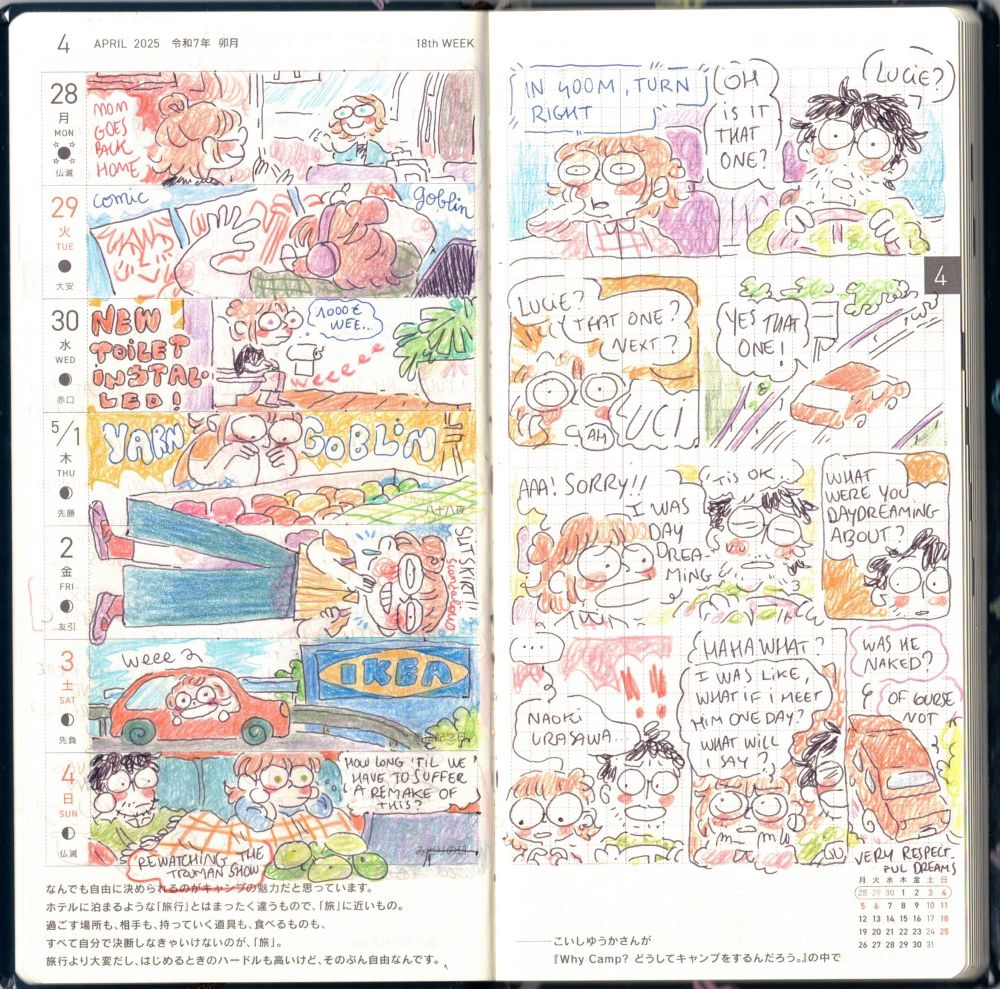 4 APRIL 2025 令和7年 卯月 18th WEEK
28
月
MON
仏滅
MOM
GOES
BACK
HOME
29
火
TUE
大安
comic goblin
30
水
WED
赤口
NEW
TOILET
INSTAL-
LED!
1000€
WEE...
weeeee
5/1
木
THU
先勝
YARN GOBLIN
八十八夜
2
金
FRI
友引
SLIT SKIRT!!
3
土
SAT
先負
weee
IKEA
4
日
SUN
仏滅
HOW LONG 'TIL WE
HAVE TO SUFFER
A REMAKE OF
THIS?
REWATCHING THE
TRUMAN SHOW
みどりの日
なんでも自由に決められるのがキャンプの魅力だと思っています。
ホテルに泊まるような「旅行」とはまったく違うもので、「旅」に近いもの。
過ごす場所も、相手も、持っていく道具も、食べるものも、
すべて自分で決断しなきゃいけないのが、「旅」。
旅行より大変だし、はじめるときのハードルも高いけど、そのぶん自由なんです。
IN 400M, TURN
RIGHT
OH
IS IT
THAT
ONE?
LUCIE?
4
LUCIE?
THAT ONE?
NEXT?
LUCI
GAH
YES THAT
ONE!
AAA! SORRY!!
I WAS
DAY
DREA-
MING
'TIS OK
WHAT
WERE YOU
DAYDREAMING
ABOUT?
...
NAOKI
URASAWA...
!!
HAHA WHAT?
I WAS LIKE,
WHAT IF I MEET
HIM ONE DAY?
WHAT WILL
I SAY?
WAS HE
NAKED?
OF COURSE
NOT
VERY RESPECT-
FUL DREAMS
月 火 水 木 金 土 日
28 29 30 1 2 3 4
5 6 7 8 9 10 11
12 13 14 15 16 17 18
19 20 21 22 23 24 25
26 27 28 29 30 31
——こいしゆうかさんが
『Why Camp? どうしてキャンプをするんだろう。』の中で